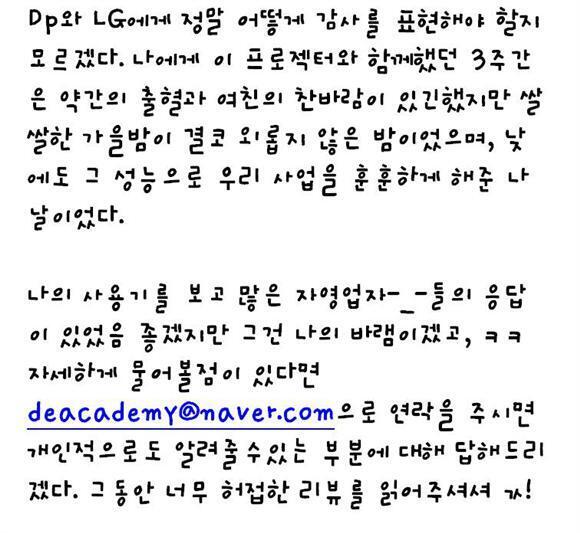 Dp와 LG에게 정말 어떻게 감사를 표현해야 할지
모르겠다. 나에게 이 프로젝터와 함께했던 3주간
은 약간의 출혈과 여친의 찬바람이 있긴했지만 쌀
쌀한 가을밤이 결코 외롭지 않은 밤이었으며, 낮
에도 그 성능으로 우리 사업을 훈훈하게 해준 나
날이었다.
나의 사용기를 보고 많은 자영업자-_-들의 응답
이 있었음 좋겠지만 그건 나의 바램이겠고, ㅋㅋ
자세하게 물어볼점이 있다면
deacademy@naver.com으로 연락을 주시면
개인적으로도 알려줄수있는 부분에 대해 답해드리
겠다. 그동안 너무 허접한 리뷰를 읽어주셔셔 ㄳ!